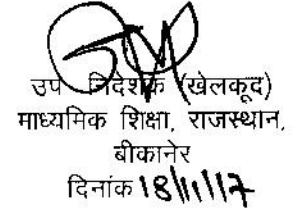 उप निदेशक (खेलकूद)
माध्यमिक शिक्षा, राजस्थान,
बीकानेर
दिनांक 18/11/17